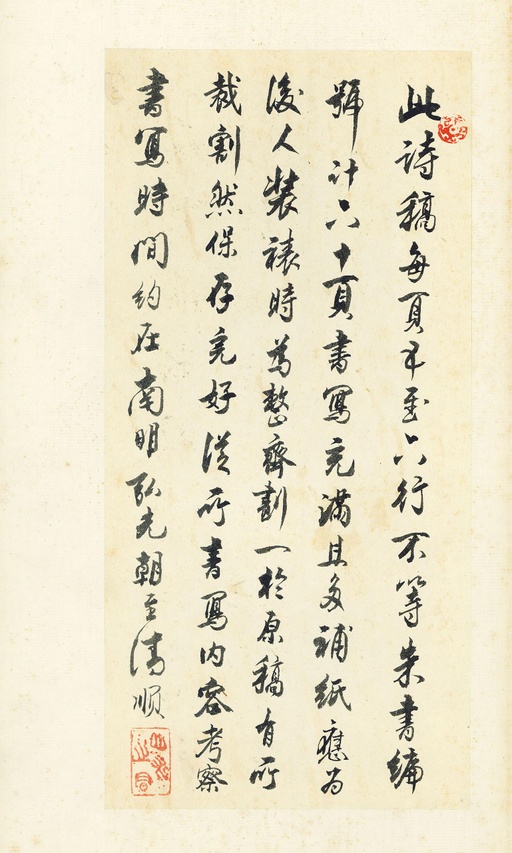 此詩稿每頁五至六行不等朱書編
號計六十頁書寫充滿且多補紙應為
後人裝裱時為整齊劃一於原稿有所
裁割然保存完好從所書寫內容考察
書寫時間約在南明弘光朝至清順